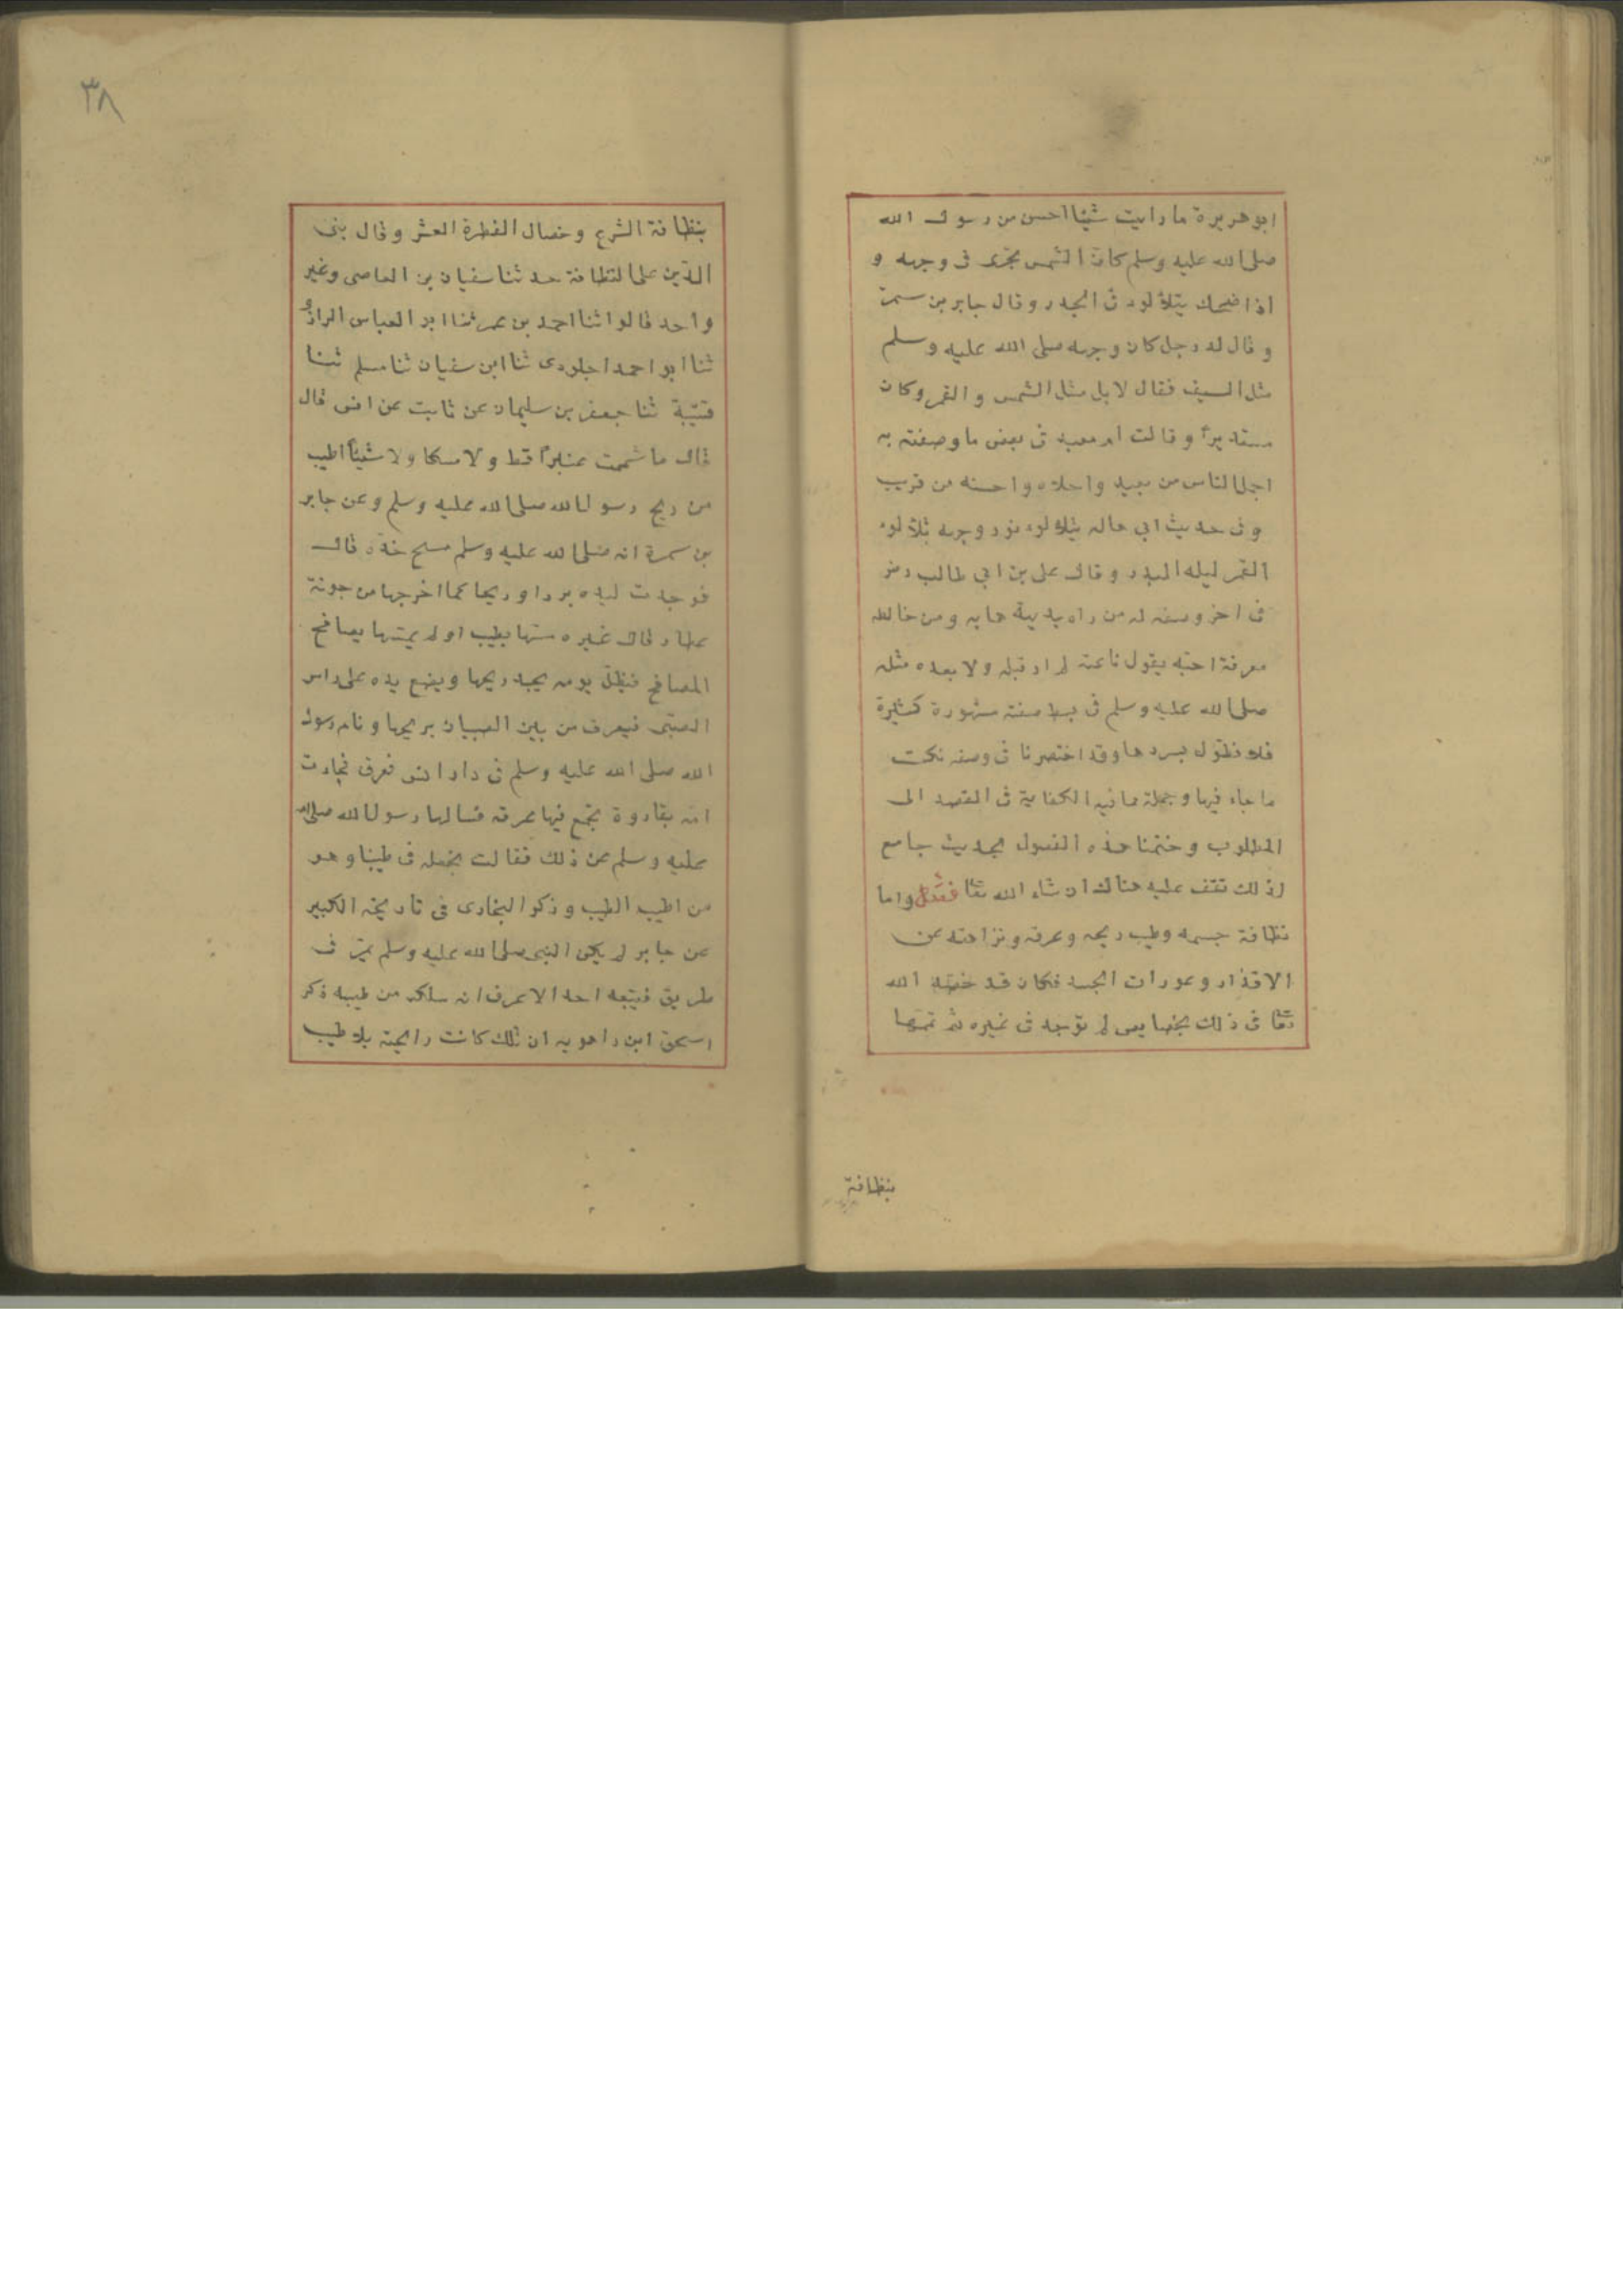 ابو هريرة ما رايت شيئا احسن من رسول الله
صلى الله عليه وسلم كان الشمس تجرى فى وجهه و
اذا ضحك يتلألؤ فى الجدر وقال جابر بن سمرة
وقال له رجل كان وجهه صلى الله عليه وسلم
مثل السيف فقال لا بل مثل الشمس والقمر وكان
مستديراً وقالت ام معبد فى بعض ما وصفته به
اجمل الناس من بعيد واحلاه واحسنه من قريب
وفى حديث ابي هالة يتلألؤ وجهه تلألؤ
القمر ليله البدر وقال على بن ابي طالب رضى
فى اخر وصفه له من راه بديهة هابه ومن خالطه
معرفة احبه يقول ناعته لم ار قبله ولا بعده مثله
صلى الله عليه وسلم فى بسط صفته مشهورة كثيرة
فلا نطول بسردها وقد اختصرنا فى وصفه نكت
ما جاء فيها وجملة مما فيه الكفاية فى القصد الى
المطلوب وختمنا هذه الفصول بحديث جامع
لذلك تقف عليه هنالك ان شاء الله تعا فصل واما
نظافة جسمه وطيب ريحه وعرقه ونزاهته عن
الاقذار وعورات الجسد فكان قد خصّه الله
تعا فى ذلك بخصايص لم توجد فى غيره ثم تممها
بنظافة
٣٨
بنظافة الشرع وخصال الفطرة العشر وقال بنى
الدّين على النظافة حدثنا سفيان بن العاصى وغير
واحد قالوا ثنا احمد بن عمر ثنا ابو العباس الرازى
ثنا ابو احمد اجلودى ثنا ابن سفيان ثنا مسلم ثنا
قتيّبة ثنا جعفر بن سليمان عن ثابت عن انس قال
قال ما شممت عنبراً قط ولا مسكا ولا شيئاً اطيب
من ريح رسول الله صلى الله عليه وسلم وعن جابر
بن سمرة انه صلى الله عليه وسلم مسح خدّه قال
فوجدت ليده بردا وريحا كما اخرجها من جونة
عطار قال غيره مسّها بطيب او لم يمسّها يصافح
المصافح فيظلّ يومه يجد ريحها ويضع يده على راس
الصبىّ فيعرف من بين الصبيان بريحها ونام رسول
الله صلى الله عليه وسلم فى دار انس فعرق فجاءت
امّه بقارورة تجمع فيها عرقه فسالها رسول الله صلى الله
عليه وسلم عن ذلك فقالت نجعله فى طيبنا وهو
من اطيب الطيب وذكر البخارى فى تاريخه الكبير
عن جابر لم يكن النبى صلى الله عليه وسلم يمرّ فى
طريق فيتبعه احد الا عرف انه سلكه من طيبه ذكر
اسحق ابن راهويه ان تلك كانت رايحته بلا طيب